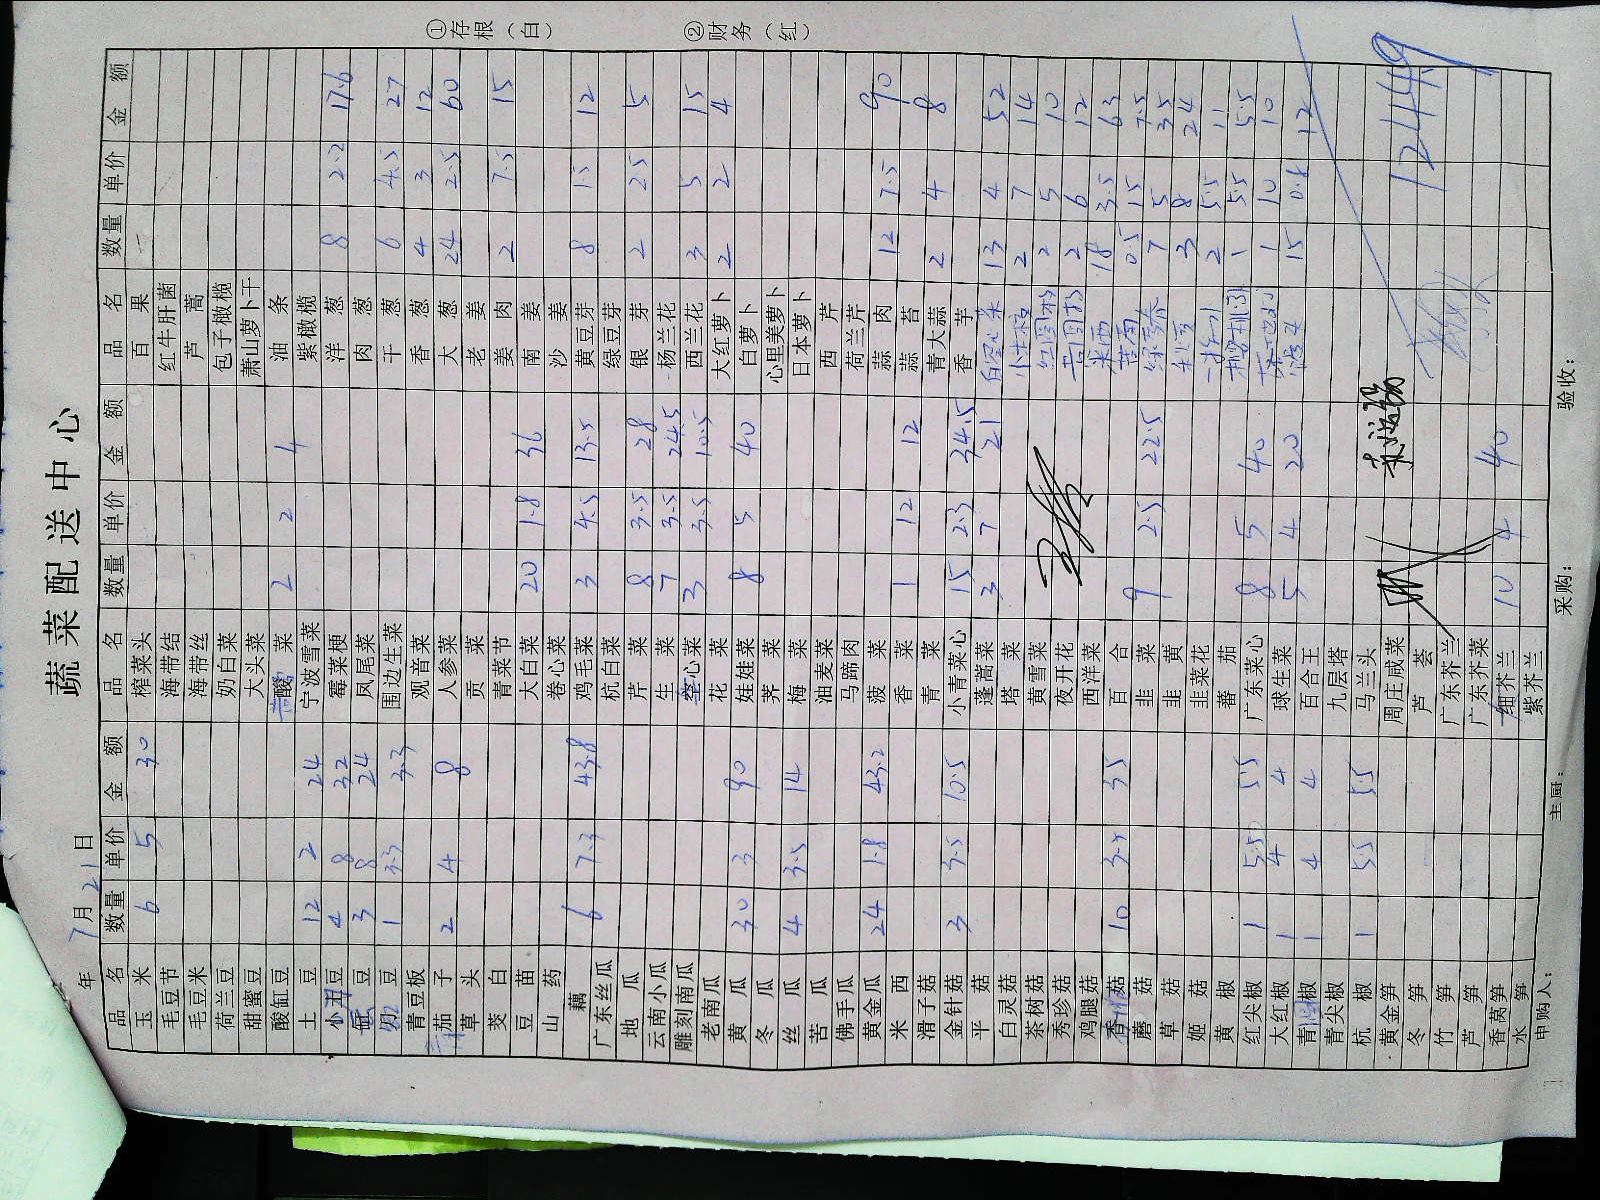 蔬菜配送中心
年 7月21日
①存根（白） ②财务（红）
品名 数量 单价 金额 品名 数量 单价 金额 品名 数量 单价 金额
玉米 6 5 30 榨菜头 百果
毛豆节 海带结 红牛肝菌
毛豆米 海带丝 芦蒿
荷兰豆 奶白菜 包子橄榄
甜蜜豆 大头菜 萧山萝卜干
酸缸豆 酸菜 2 2 4 油条
土豆 12 2 24 宁波雪菜 紫橄榄
小 豆 4 8 32 霉菜梗 洋葱 8 2.2 17.6
豆 3 8 24 凤尾菜 肉葱
豆 1 3.3 3.3 围边生菜 干葱 6 4.5 27
青豆板 观音菜 香葱 4 3 12
茄子 2 4 8 人参菜 大葱 24 2.5 60
草头 贡菜 老姜
茭白 青菜节 姜肉 2 7.5 15
豆苗 大白菜 20 1.8 36 南姜
山药 卷心菜 沙姜
藕 6 7.3 43.8 鸡毛菜 3 4.5 13.5 黄豆芽 8 1.5 12
广东丝瓜 杭白菜 绿豆芽
地瓜 芹菜 8 3.5 28 银芽 2 2.5 5
云南小瓜 生菜 7 3.5 24.5 杨兰花
雕刻南瓜 空心菜 3 3.5 10.5 西兰花 3 5 15
老南瓜 花菜 大红萝卜 2 2 4
黄瓜 30 3 90 娃娃菜 8 5 40 白萝卜
冬瓜 荠菜 心里美萝卜
丝瓜 4 3.5 14 梅菜 日本萝卜
苦瓜 油麦菜 西芹
佛手瓜 马蹄肉 荷兰芹
黄金瓜 24 1.8 43.2 菠菜 蒜肉 12 7.5 90
米西 香菜 1 12 12 蒜苔
滑子菇 青菜 青大蒜 2 4 8
金针菇 3 3.5 10.5 小青菜心 15 2.3 34.5 香芋
平菇 蓬蒿菜 3 7 21 13 4 52
白灵菇 塔菜 2 7 14
茶树菇 黄雪菜 2 5 10
秀珍菇 夜开花 2 6 12
鸡腿菇 西洋菜 18 3.5 63
香菇 10 3.5 35 百合 0.5 15 7.5
蘑菇 韭菜 9 2.5 22.5 7 5 35
草菇 韭黄 3 8 24
姬菇 韭菜花 2 5.5 11
黄椒 蕃茄 1 5.5 5.5
红尖椒 1 5.5 5.5 广东菜心 8 5 40 1 10 10
大红椒 1 4 4 球生菜 5 4 20 15 0.8 12
青 椒 1 4 4 百合王
青尖椒 九层塔
杭椒 1 5.5 5.5 马兰头
黄金笋 周庄咸菜 1244.9
冬笋 芦荟
竹笋 广东芥兰
芦笋 广东芥菜
香莴笋 细芥兰 10 4 40
水笋 紫芥兰
申购人： 主厨： 采购： 验收：